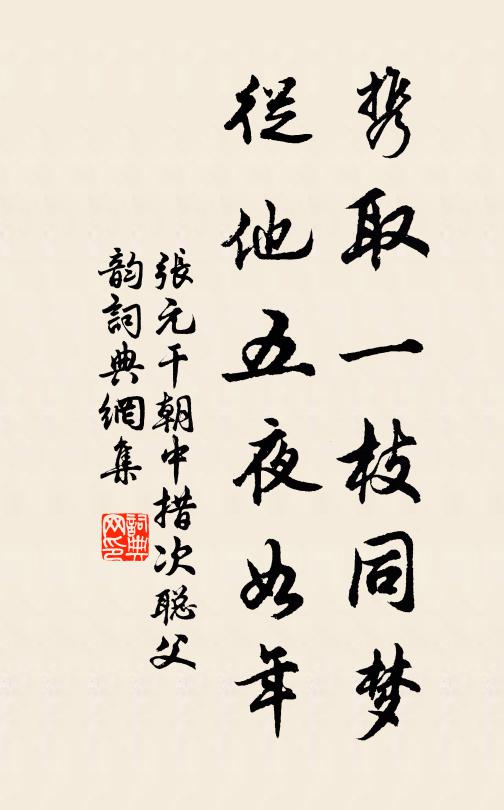 携取一枝同梦
從他五夜如年
張元干朝中措次聪父
韵詞典網集
詞典网印